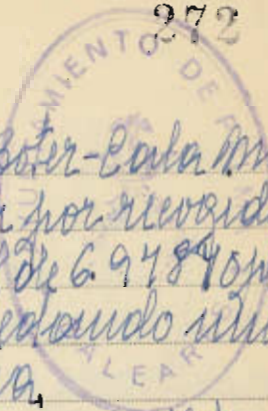 272
AMIENTO DE
Boter-Cala M
por recogid
de 6.978'40 p
edando uni
a
ALEAR